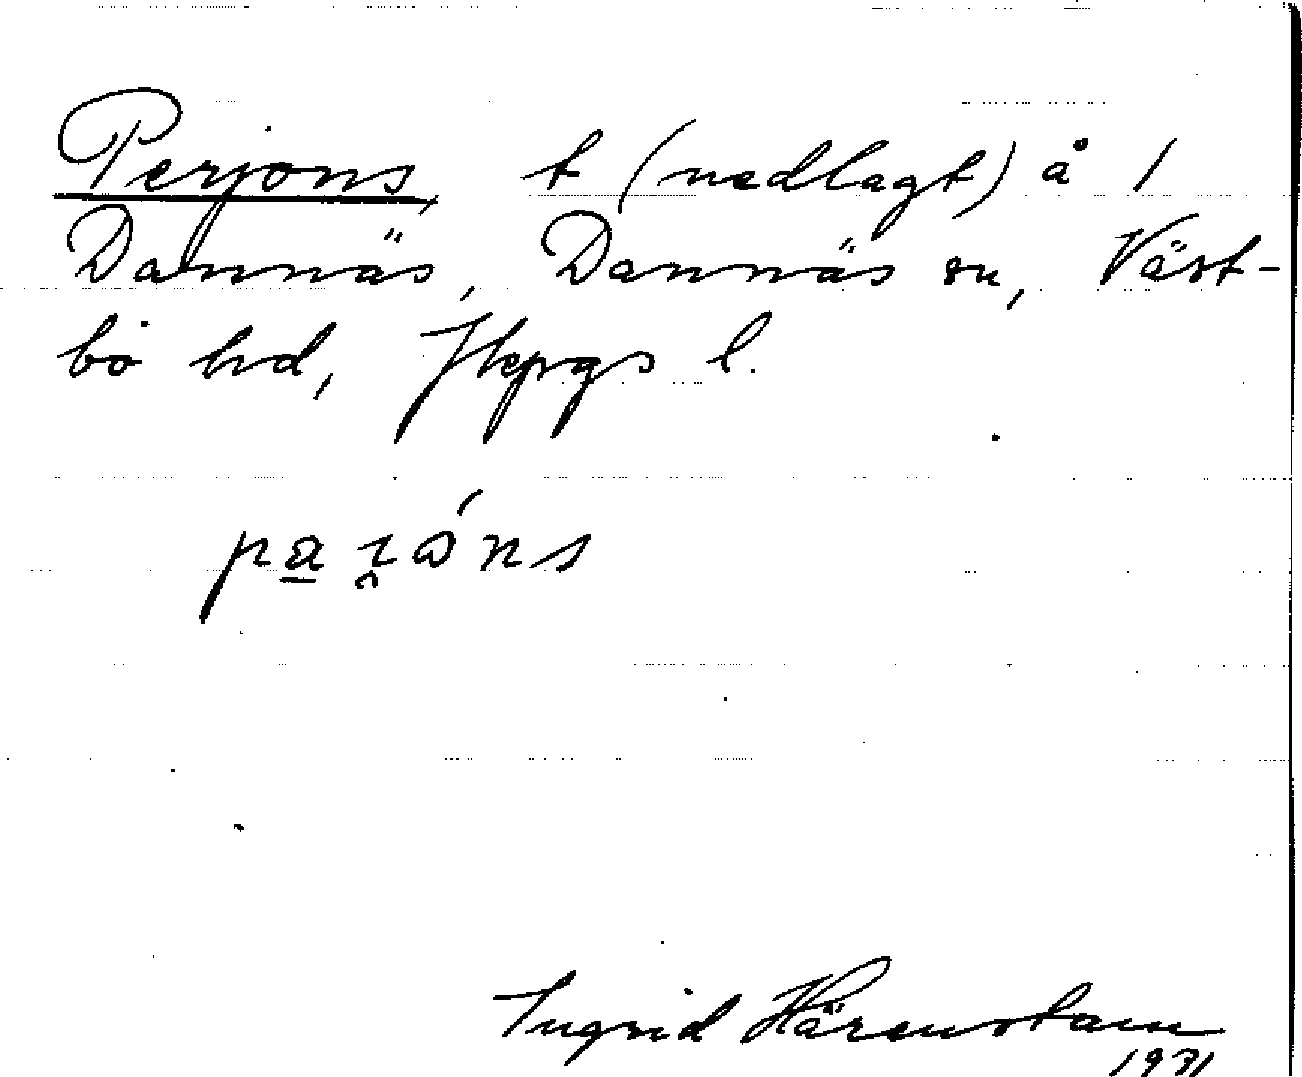 Perjons, t (nedlagt) å 1
Dannäs, Dannäs sn, Väst-
bo hd, Jkpgs l.
Ingrid Härenstam
1931